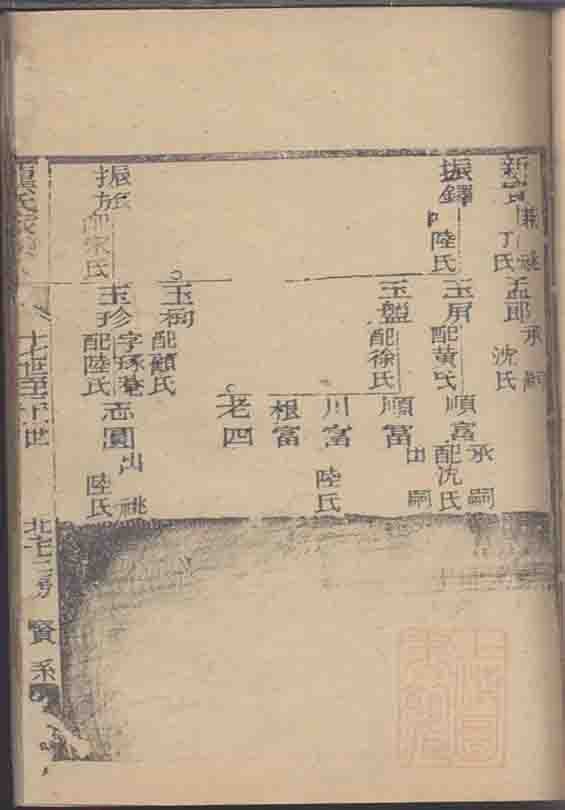 新富
兼祧
丁氏
孟郎
承嗣
沈氏
振鐸
陸氏
玉屏
配黃氏
順富
承嗣
配沈氏
玉盤
配徐氏
順富
出嗣
川富
陸氏
根富
老四
玉栒
配顧氏
振旅
配宗氏
玉珍
字琢菴
配陸氏
志圓
出祧
陸氏
氏家
十七世至二十世
北宅二房
賢系